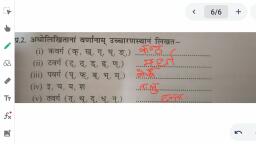 6/6
प्र.2. अधोलिखितानां वर्णानाम् उच्चारणस्थानं लिखत–
(i) कवर्ग (क्, ख्, ग्, घ्, ङ्) कण्ठ
(ii) टवर्ग (ट्, ठ्, ड्, ढ्, ण्)
(iii) पवर्ग (प्, फ्, ब्, भ्, म्)
(iv) इ, च, य, श तालु
(v) तवर्ग (त्, थ्, द्, ध्, न्) दन्त